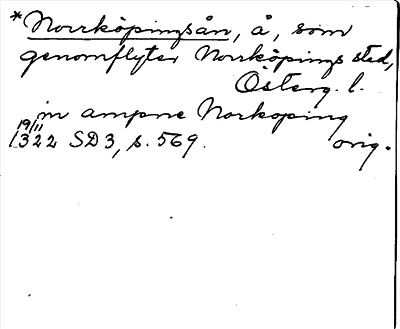 *Norrköpingsån, å, som
genomflyter Norrköpings stad,
Österg. l.
in ampne Norkoping
19/11 1322 SD 3, s. 569. orig.